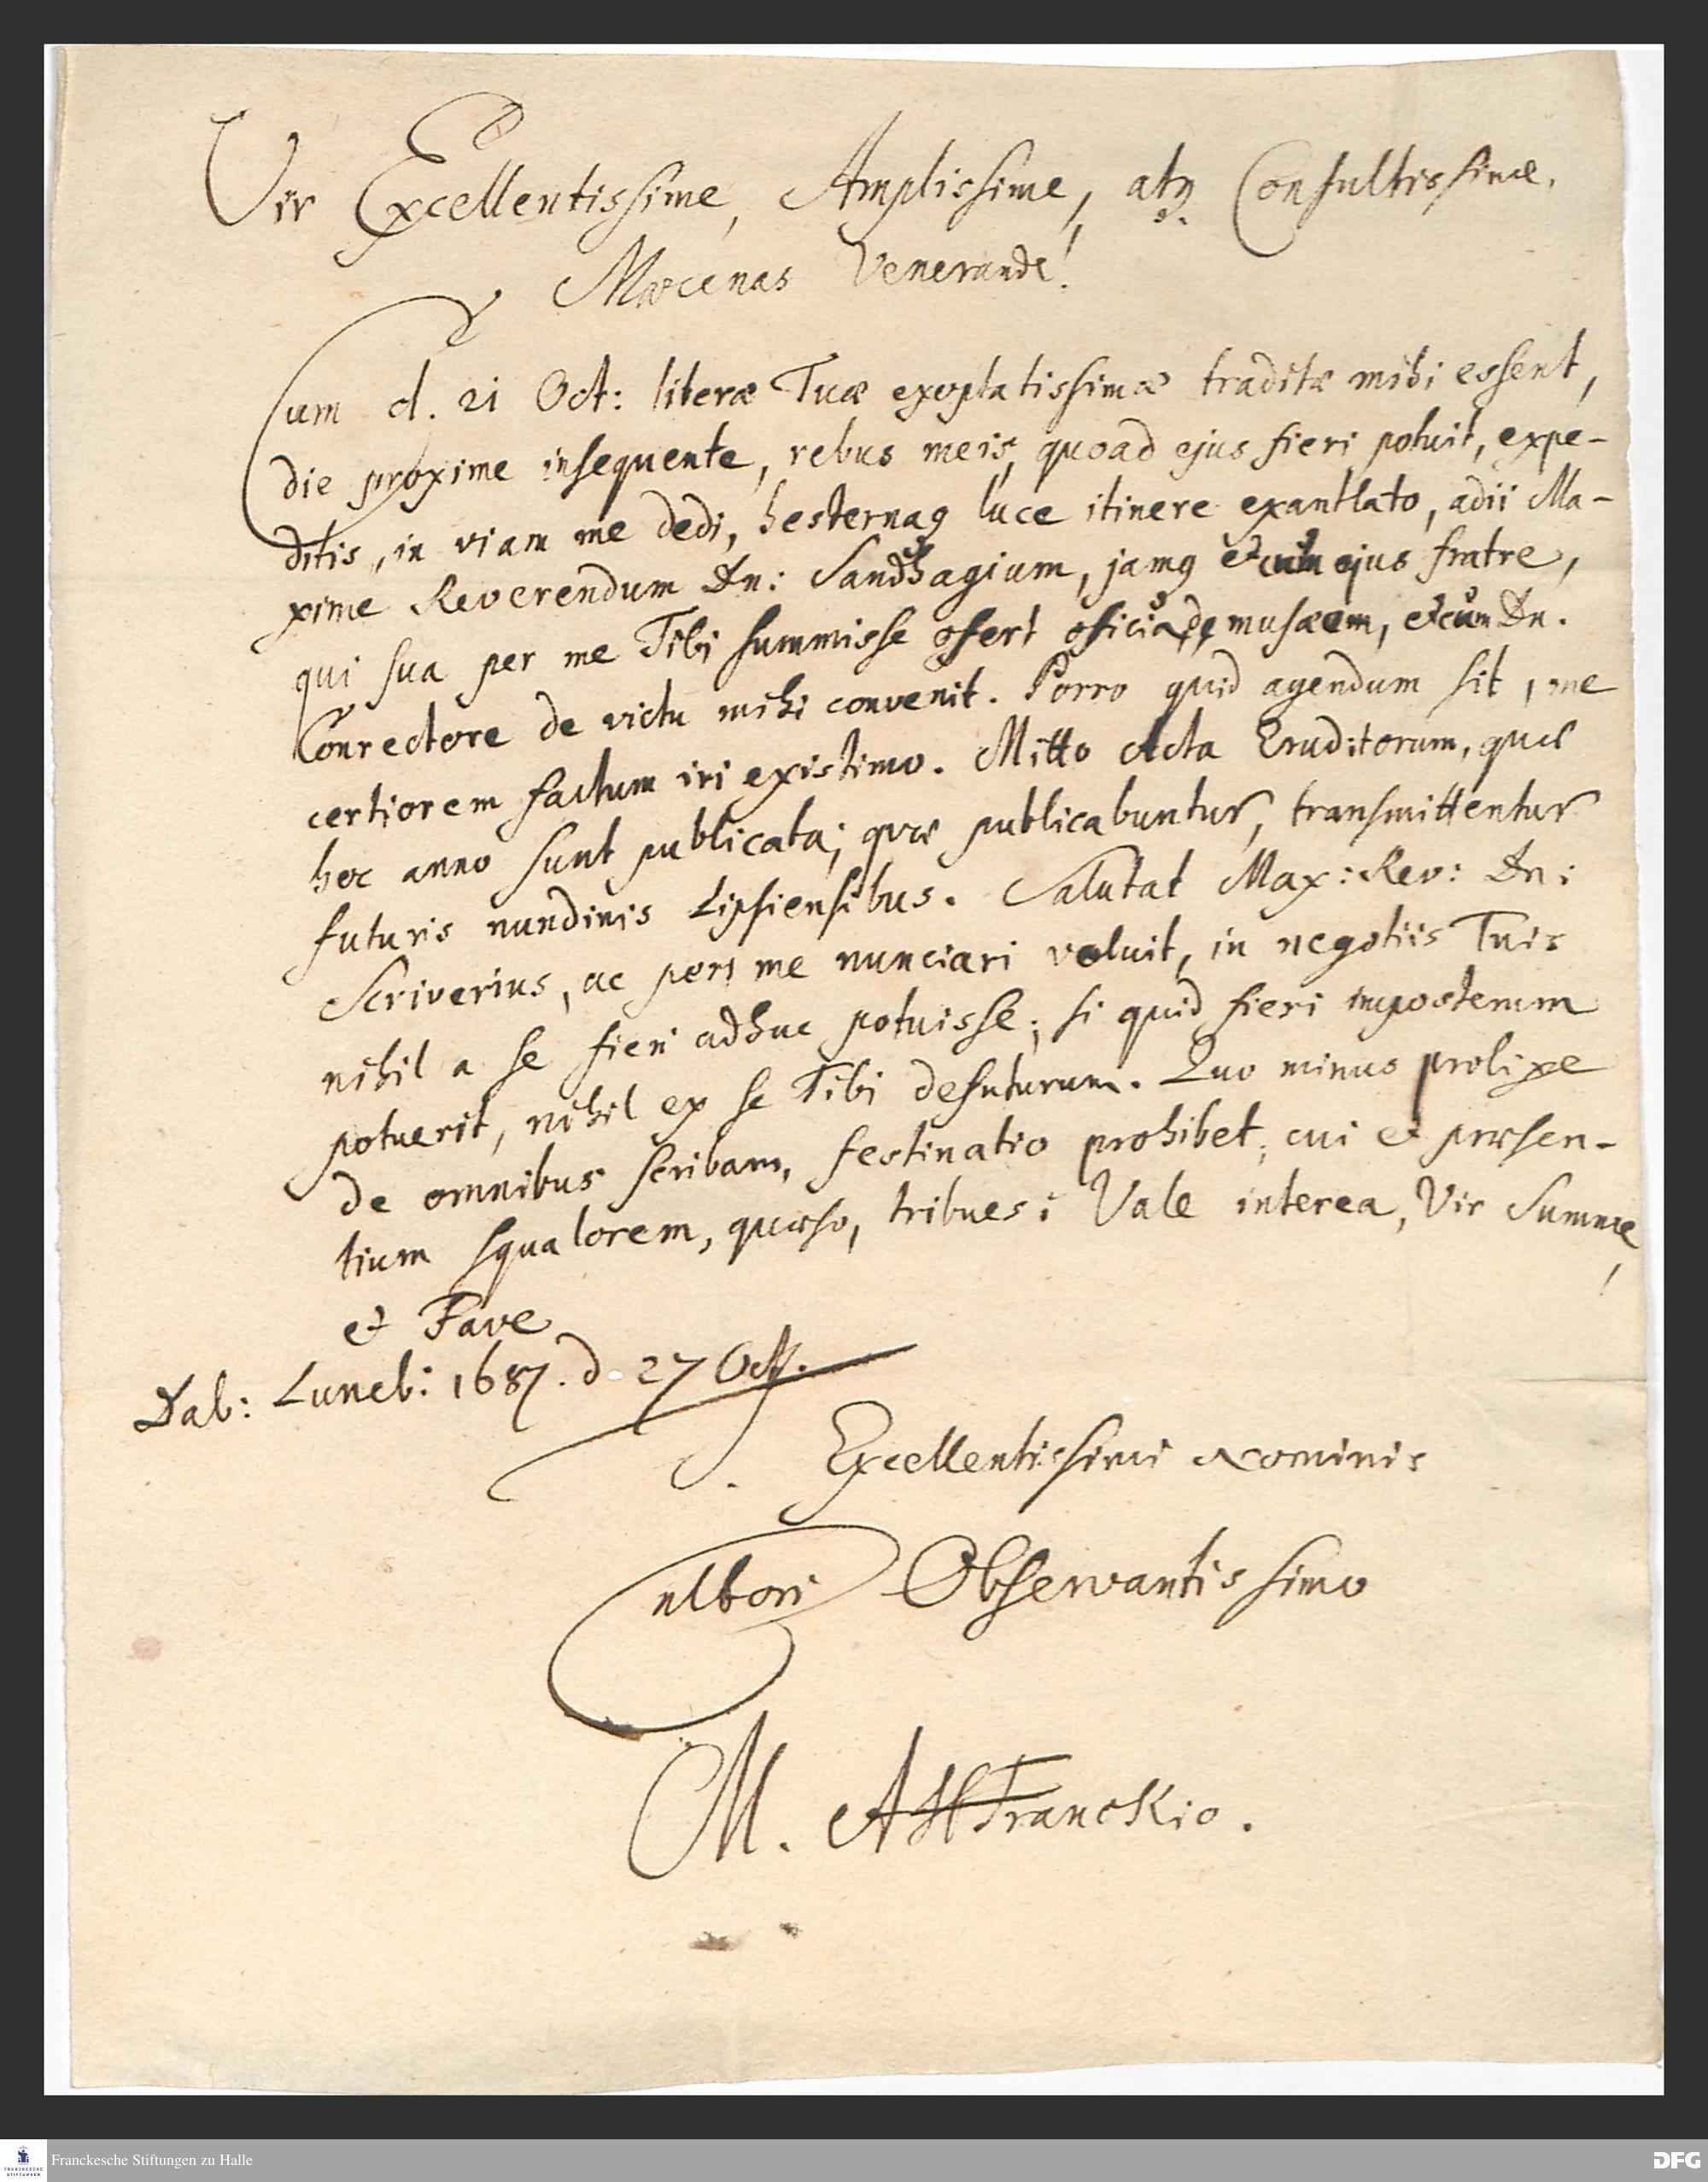 Vir Excellentissime, Amplissime, atq3 Consultissime,
Mæcenas Venerande!
Cum d. 21 Oct: literæ Tuæ exoptatissimæ traditæ mihi essent,
die proxime insequente, rebus meis, quoad ejus fieri potuit, expe-
ditis, in viam me dedi, hesternaq luce itinere exantlato, adii Ma-
xime Reverendum Dn: Sandhagium, jamq et cum ejus fratre,
qui sua per me Tibi summisse ofert oficia, de musæem, et cum Dn.
Conrectore de victu mihi convenit. Porro quid agendum sit, me
certiorem factum iri existimo. Mitto Acta Eruditorum, quæ
hoc anno sunt publicata; quæ publicabuntur, transmittentur
futuris nundinis Lipsiensibus. Salutat Max: Rev: Dn:
Scriverius, ac per me nunciari voluit, in negotiis Tuis
nihil a se fieri adhuc potuisse; si quid fieri imposterum
potuerit, nihil ex se Tibi defuturum. Quo minus prolixe
de omnibus scribam, festinatio prohibet, cui et præsen-
tium squalorem, quæso, tribues: Vale interea, Vir Summe,
et Fave
Dab: Luneb: 1687. d. 27 Oct.
Excellentissimi Nominis
Cultori Observantissimo
M. AHFranckio.
Franckesche Stiftungen zu Halle
FRANCKESCHE
STIFTUNGEN
DFG